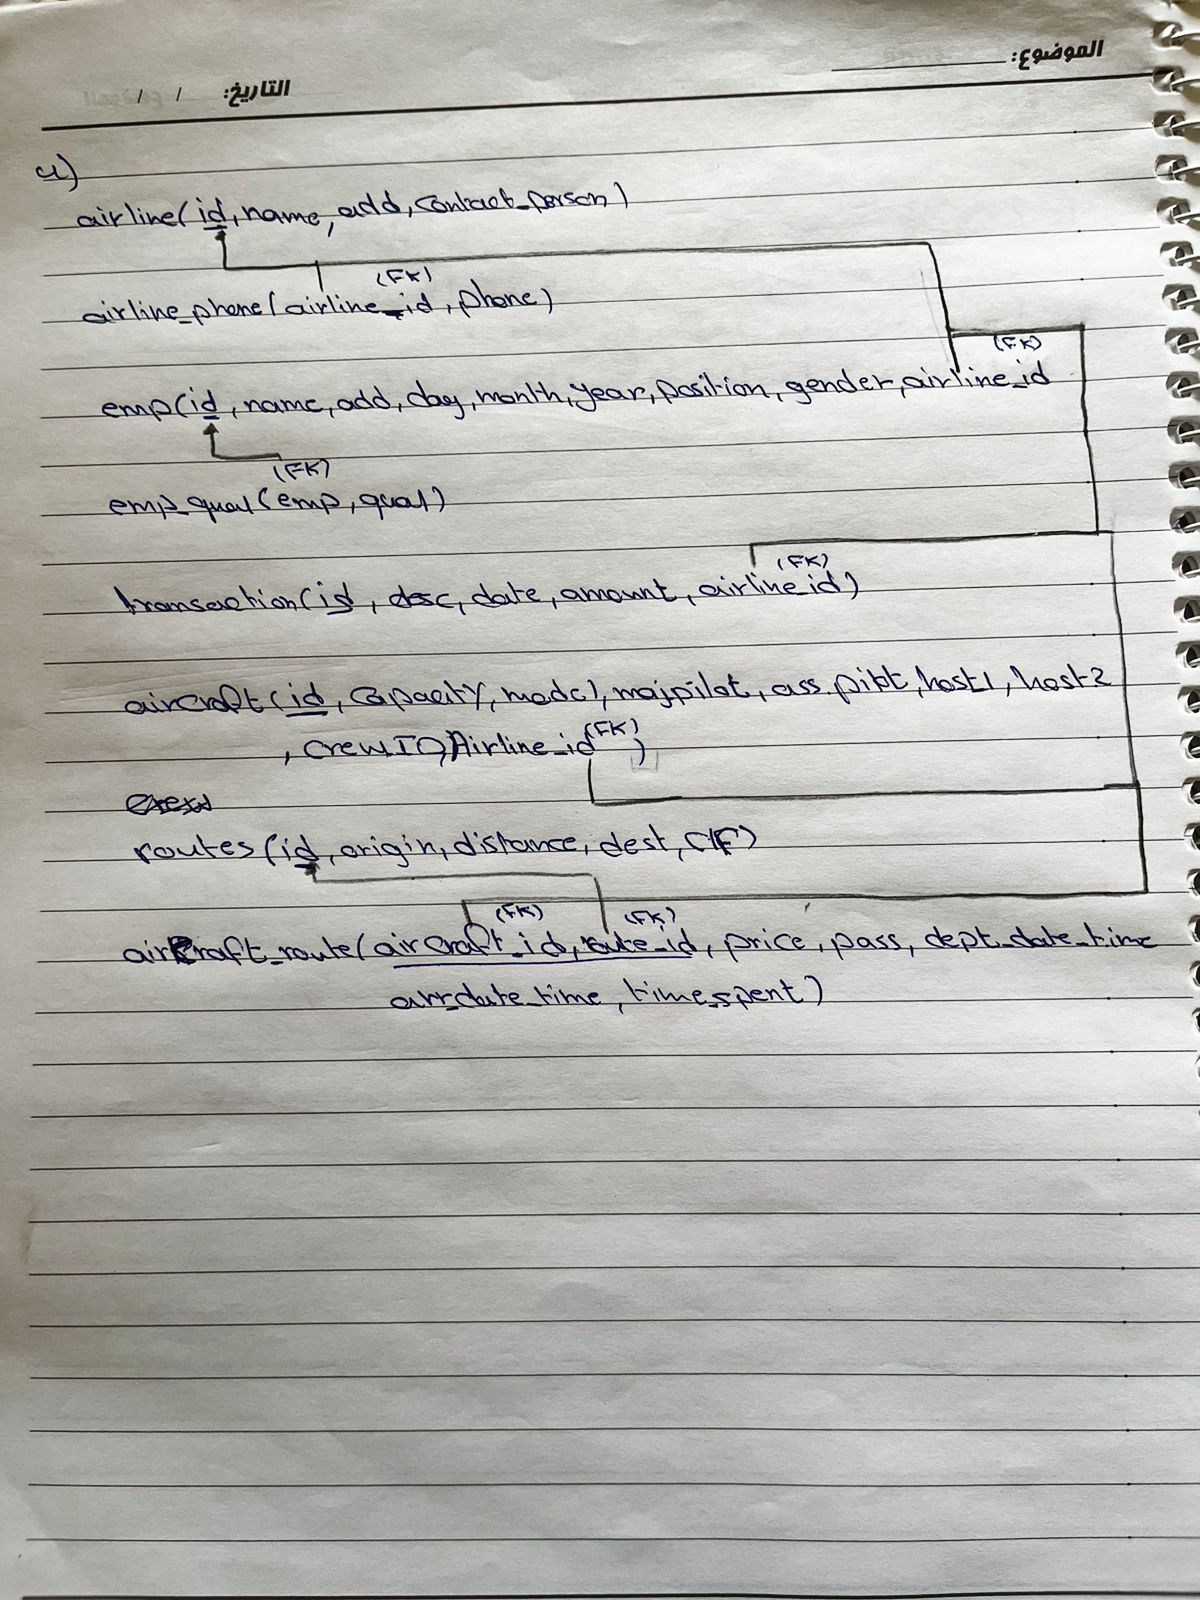 الموضوع:
التاريخ: / /
4)
airline(id, name, add, contact_person)
(FK)
airline_phone(airline_id, phone)
(FK)
emp(id, name, add, day, month, year, position, gender, airline_id
(FK)
emp_qual(emp, qual)
(FK)
transaction(id, desc, date, amount, airline_id)
aircraft(id, capacity, model, majpilot, ass.pilot, host1, host2
(FK)
, crewID, Airline_id)
routes(id, origin, distance, dest,
(FK) (FK)
aircraft_route(aircraft_id, route_id, price, pass, dept_date_time
arr_date_time, time_spent)